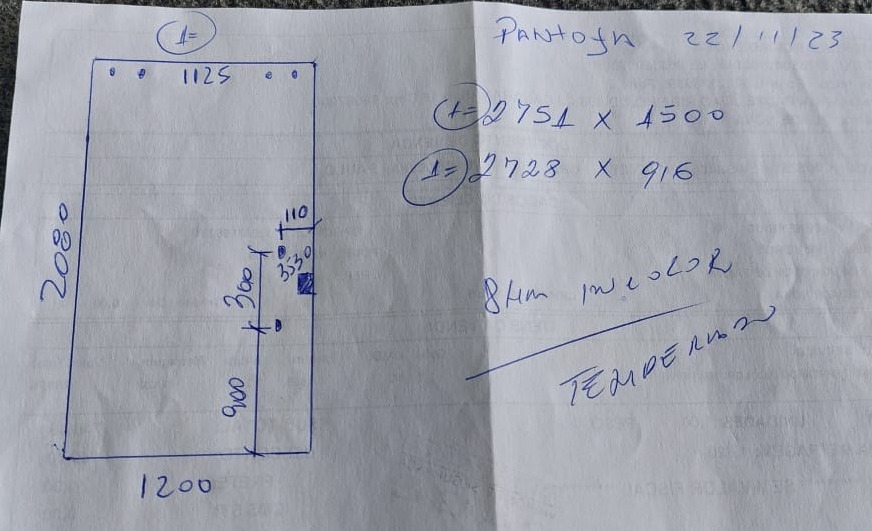 1=
PANTOJA 22/11/23
1125
1= 2751 x 1500
1= 2728 x 916
2080
110
3530
300
8MM INCOLOR
TEMPERADO
900
1200